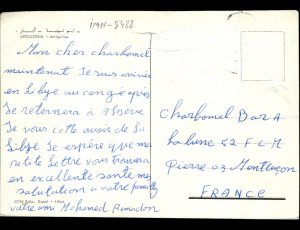 IMM-5488
APOLLONIA
Mon cher charbomel
maintenat Je suis arrivée
en Libye au congé après
Je reternera à Algerie
Je vous cotte avoir de la
Libye Je espère que ma
petite Lettre vous trouvera
en excellente santé mes
salutation a votre family
votre ami Mohamed Ramadon
Charbomel Bar A
La lune 52 F.C.M
Pierre 03 Montlucon
FRANCE